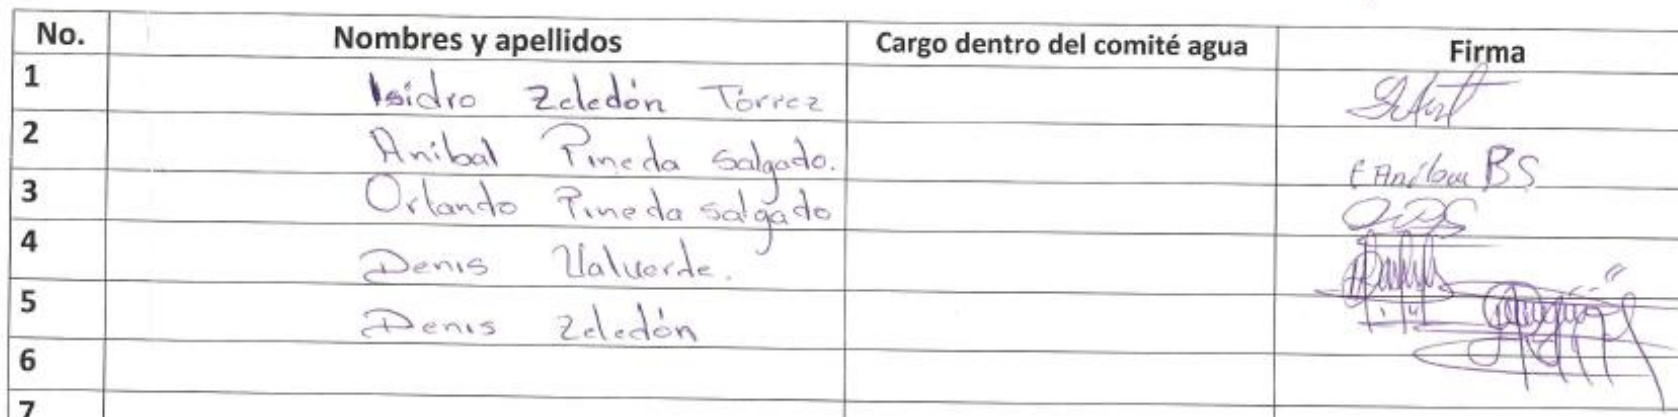 No. Nombres y apellidos Cargo dentro del comité agua Firma
1 Isidro Zeledón Tórrez
2 Anibal Pineda Salgado.
3 Orlando Pineda Salgado
4 Denis Valverde.
5 Denis Zeledón
6
7